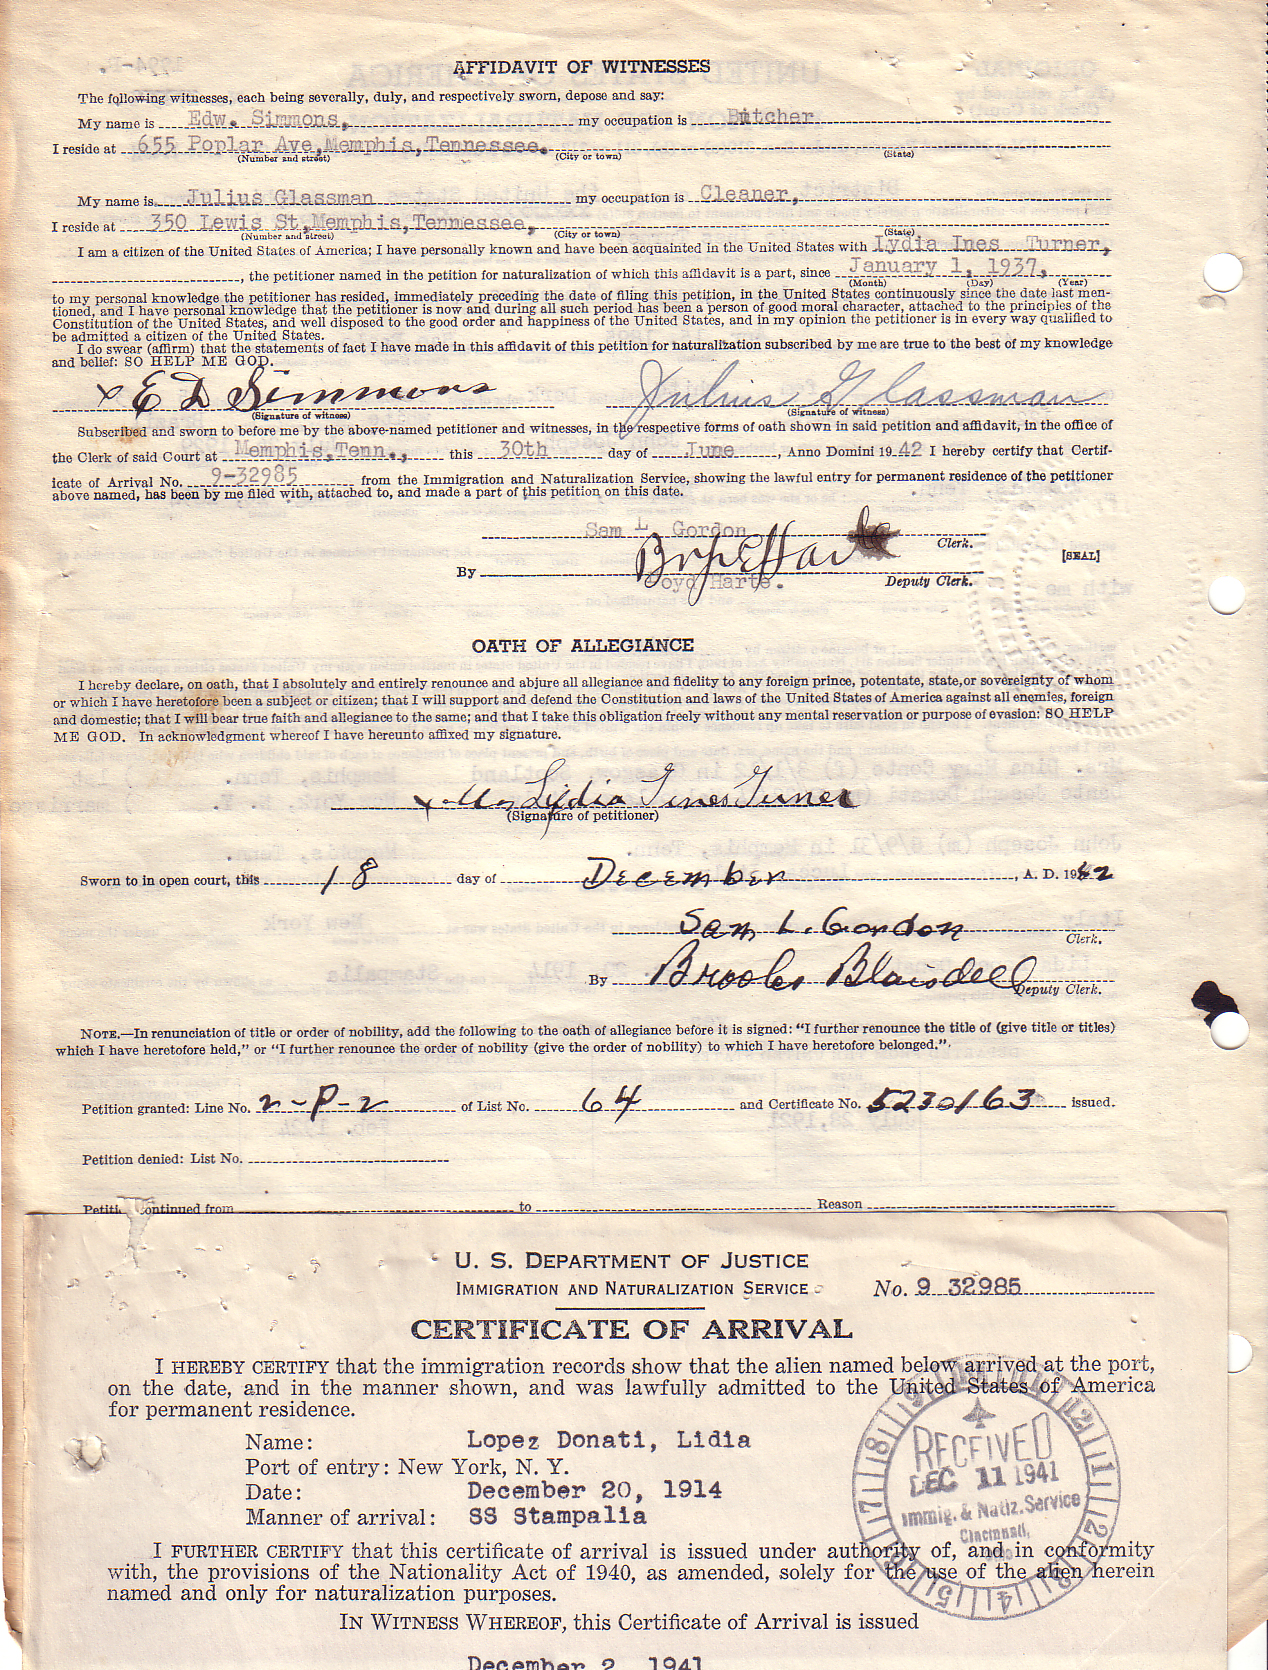 AFFIDAVIT OF WITNESSES
The following witnesses, each being severally, duly, and respectively sworn, depose and say:
My name is Edw. Simmons, my occupation is Butcher
I reside at 655 Poplar Ave, Memphis, Tennessee.
(Number and street) (City or town) (State)
My name is Julius Glassman my occupation is Cleaner,
I reside at 350 Lewis St, Memphis, Tennessee,
(Number and street) (City or town) (State)
I am a citizen of the United States of America; I have personally known and have been acquainted in the United States with Lydia Ines Turner,
, the petitioner named in the petition for naturalization of which this affidavit is a part, since January 1, 1937,
(Month) (Day) (Year)
to my personal knowledge the petitioner has resided, immediately preceding the date of filing this petition, in the United States continuously since the date last men-
tioned, and I have personal knowledge that the petitioner is now and during all such period has been a person of good moral character, attached to the principles of the
Constitution of the United States, and well disposed to the good order and happiness of the United States, and in my opinion the petitioner is in every way qualified to
be admitted a citizen of the United States.
I do swear (affirm) that the statements of fact I have made in this affidavit of this petition for naturalization subscribed by me are true to the best of my knowledge
and belief: SO HELP ME GOD.
x E D Simmons Julius Glassman
(Signature of witness) (Signature of witness)
Subscribed and sworn to before me by the above-named petitioner and witnesses, in the respective forms of oath shown in said petition and affidavit, in the office of
the Clerk of said Court at Memphis, Tenn., this 30th day of June, Anno Domini 1942 I hereby certify that Certif-
icate of Arrival No. 9-32985 from the Immigration and Naturalization Service, showing the lawful entry for permanent residence of the petitioner
above named, has been by me filed with, attached to, and made a part of this petition on this date.
Sam L Gordon
Clerk.
[SEAL]
By Boyd Harte
Boyd Harte. Deputy Clerk.
OATH OF ALLEGIANCE
I hereby declare, on oath, that I absolutely and entirely renounce and abjure all allegiance and fidelity to any foreign prince, potentate, state, or sovereignty of whom
or which I have heretofore been a subject or citizen; that I will support and defend the Constitution and laws of the United States of America against all enemies, foreign
and domestic; that I will bear true faith and allegiance to the same; and that I take this obligation freely without any mental reservation or purpose of evasion: SO HELP
ME GOD. In acknowledgment whereof I have hereunto affixed my signature.
x Mrs Lydia Ines Turner
(Signature of petitioner)
Sworn to in open court, this 18 day of December, A. D. 1942
Sam L. Gordon
Clerk.
By Brooks Blaisdell
Deputy Clerk.
NOTE.—In renunciation of title or order of nobility, add the following to the oath of allegiance before it is signed: "I further renounce the title of (give title or titles)
which I have heretofore held," or "I further renounce the order of nobility (give the order of nobility) to which I have heretofore belonged."
Petition granted: Line No. 2-P-2 of List No. 64 and Certificate No. 5230163 issued.
Petition denied: List No.
Petition continued from to Reason
U. S. DEPARTMENT OF JUSTICE
IMMIGRATION AND NATURALIZATION SERVICE
No. 9 32985
CERTIFICATE OF ARRIVAL
I HEREBY CERTIFY that the immigration records show that the alien named below arrived at the port,
on the date, and in the manner shown, and was lawfully admitted to the United States of America
for permanent residence.
Name: Lopez Donati, Lidia
Port of entry: New York, N. Y.
Date: December 20, 1914
Manner of arrival: SS Stampalia
RECEIVED
DEC 11 1941
Immig. & Natlz. Service
Cincinnati,
I FURTHER CERTIFY that this certificate of arrival is issued under authority of, and in conformity
with, the provisions of the Nationality Act of 1940, as amended, solely for the use of the alien herein
named and only for naturalization purposes.
IN WITNESS WHEREOF, this Certificate of Arrival is issued
December 2, 1941